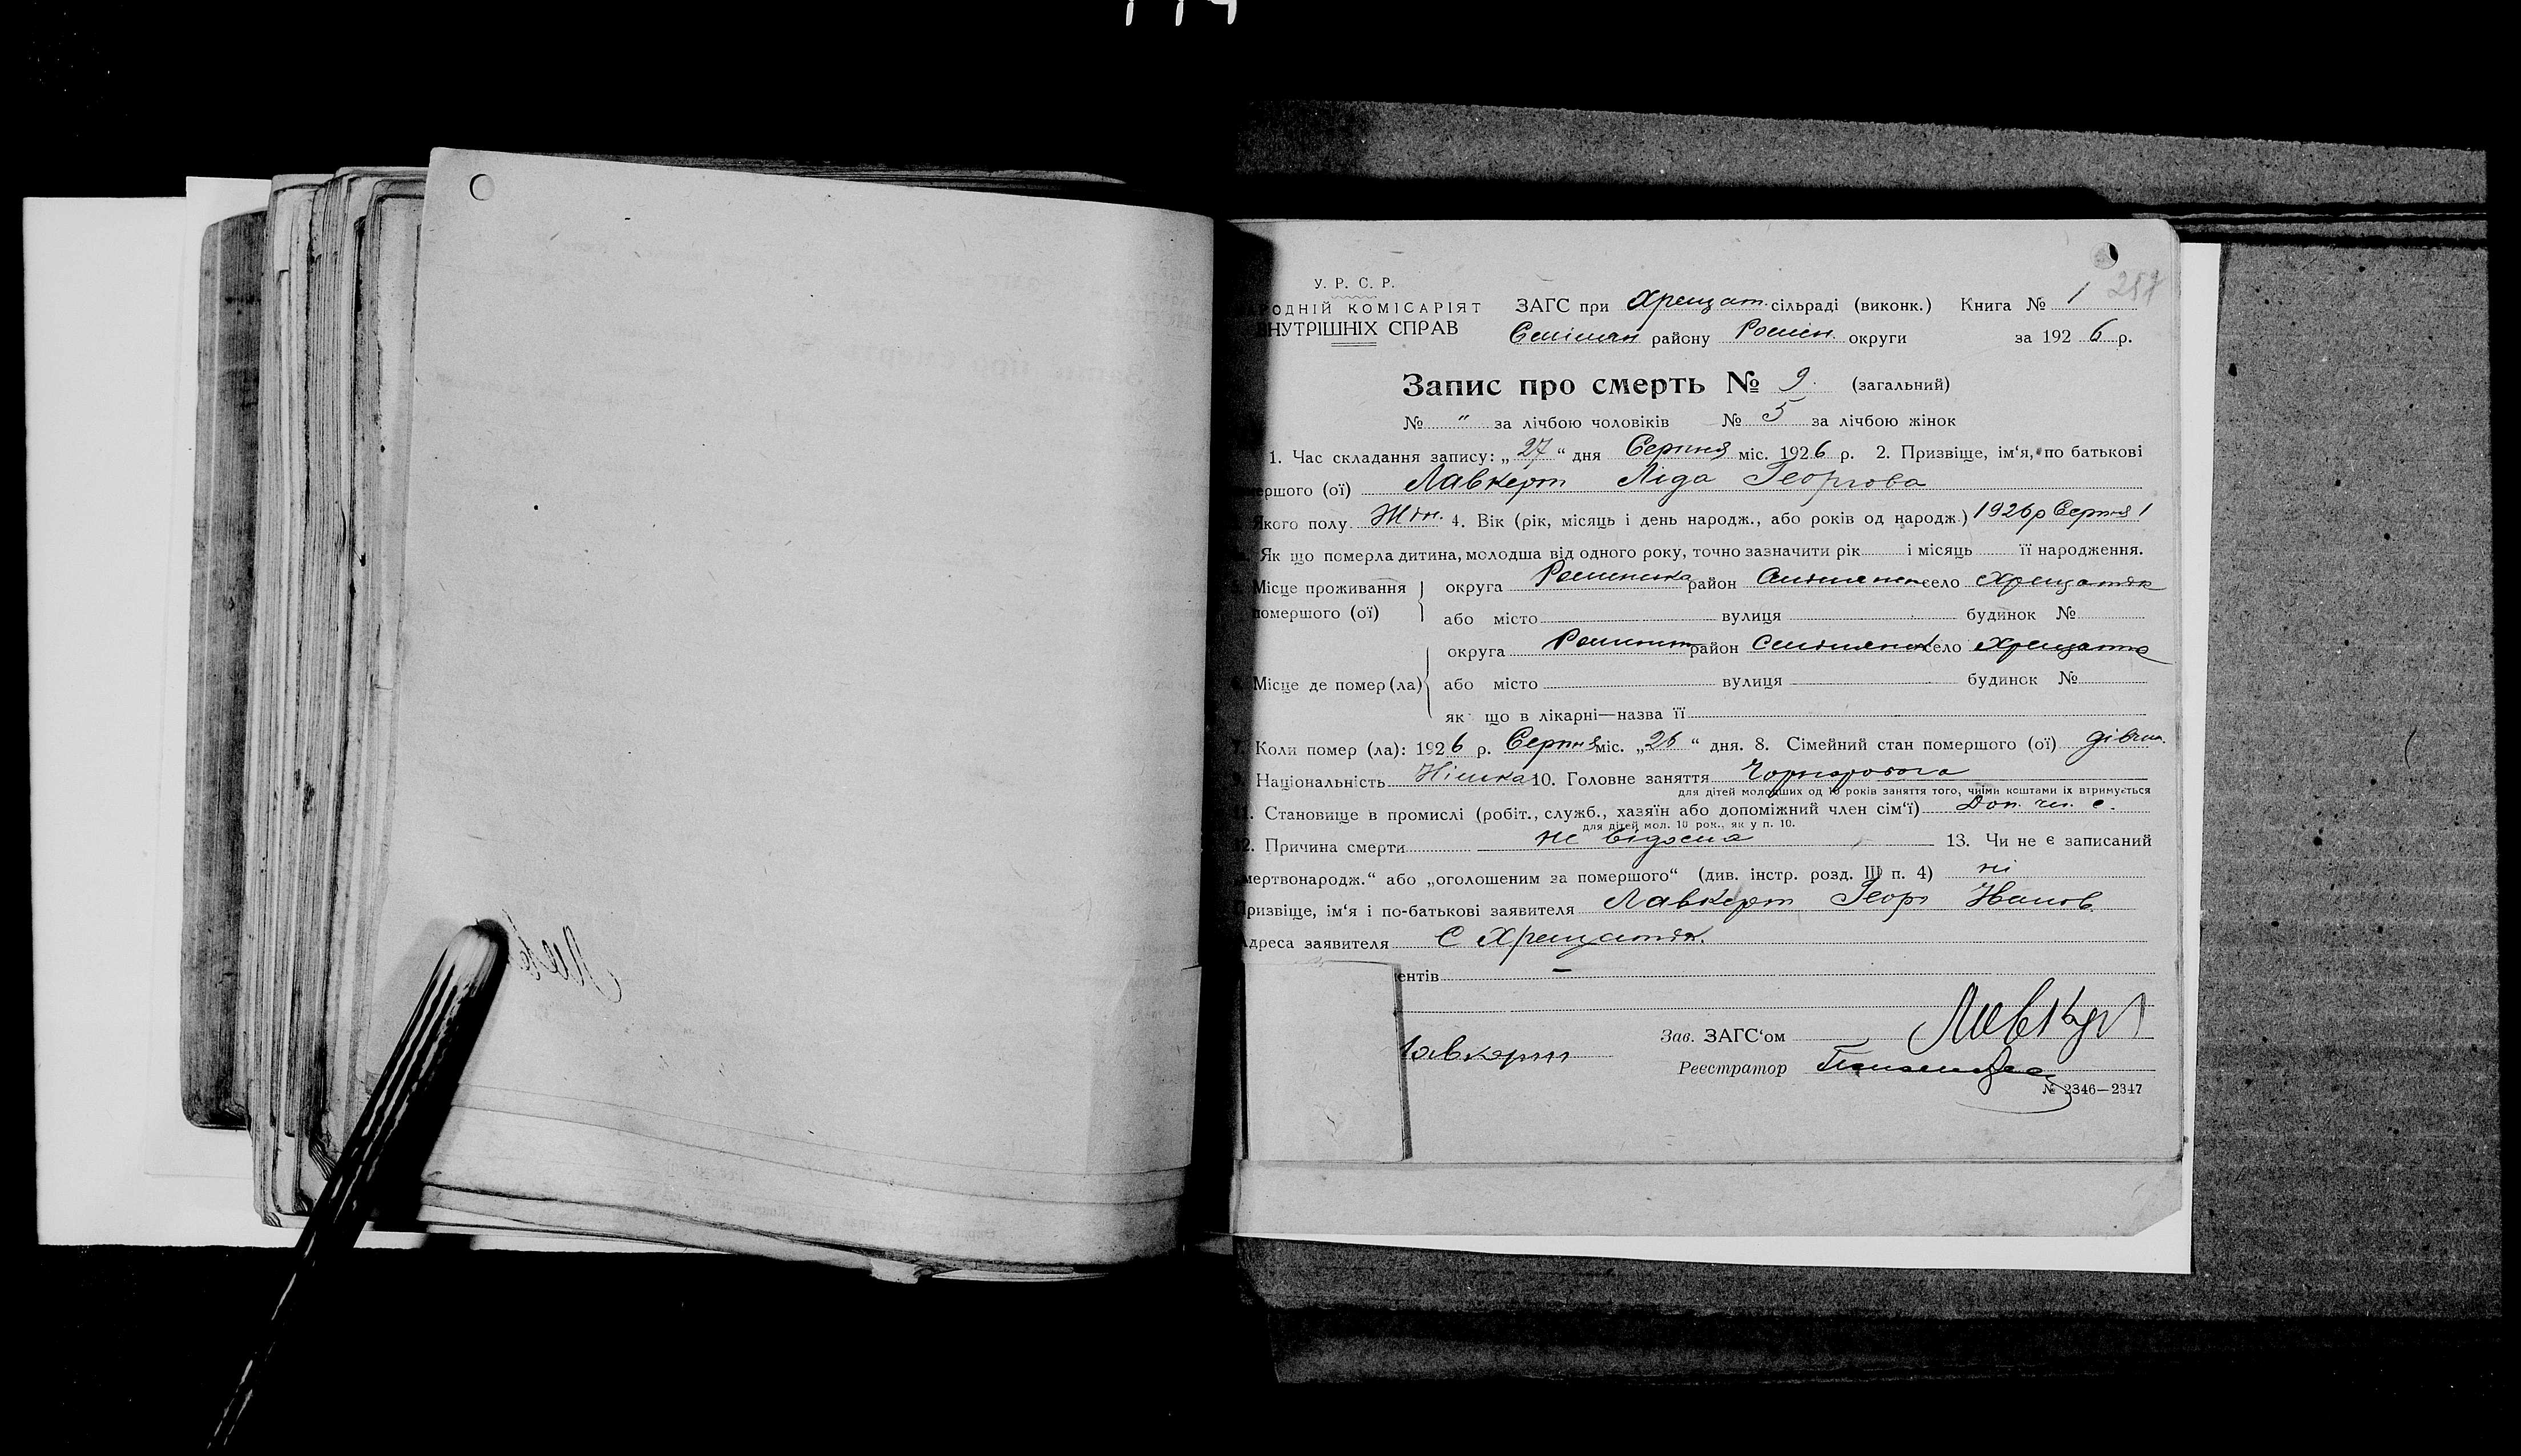 287
У. Р. С. Р.
РОДНІЙ КОМІСАРІЯТ ЗАГС при Хрещат. сільраді (виконк.) Книга № 1
НУТРІШНІХ СПРАВ району Ромен. округи за 1926 р.
Запис про смерть № 9. (загальний)
№ " за лічбою чоловіків № 5 за лічбою жінок
1. Час складання запису: „27“ дня Серпня міс. 1926 р. 2. Призвіще, ім‘я, по батькові
ершого (ої) Лавкерт Ліда Георгова
Якого полу Жін. 4. Вік (рік, місяць і день народж., або років од народж.) 1926р Серпня 1
Як що померла дитина, молодша від одного року, точно зазначити рік і місяць її народження.
Місце проживання округа район село
помершого (ої) або місто вулиця будинок №
округа район село
Місце де помер (ла) або місто вулиця будинок №
як що в лікарні—назва її
Коли помер (ла): 1926 р. Серпня міс. „26“ дня. 8. Сімейний стан помершого (ої)
Національність Німка 10. Головне заняття
для дітей молодших од 10 років заняття того, чиїми коштами їх втримується
1. Становище в промислі (робіт., служб., хазяїн або допоміжний член сім‘ї) Доп. чл. с.
для дітей мол. 10 рок., як у п. 10.
2. Причина смерти не відома 13. Чи не є записаний
мертвонародж.“ або „оголошеним за помершого“ (див. інстр. розд. III п. 4) ні
ризвіще, ім‘я і по-батькові заявителя Лавкерт Георг Іванов.
дреса заявителя С Хрещатік.
ентів –
Зав. ЗАГС‘ом
авкерт
Реєстратор
№ 2346—2347